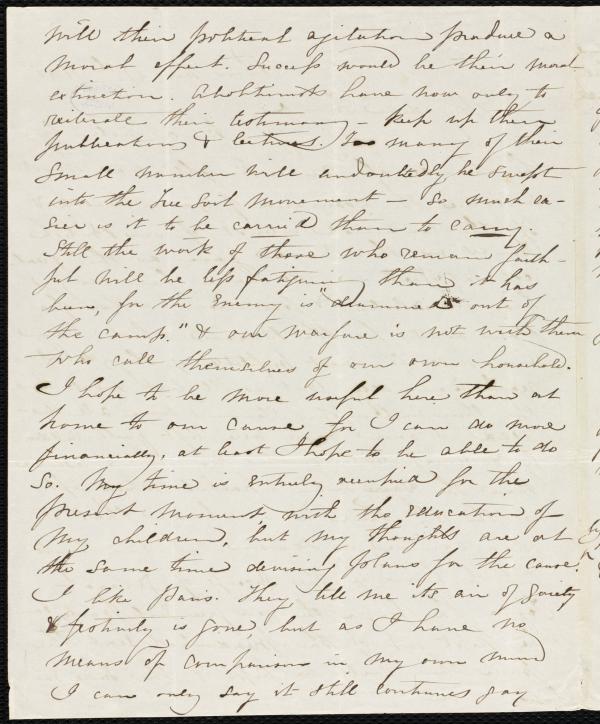 will their political agitation produce a
moral effect. Success would be their moral
extinction. Abolitionists have now only to
reiterate their testimony - keep up their
publications & lectures. Too many of their
small number will undoubtedly be swept
into the Free Soil movement - so much ea-
sier is it to be carried than to carry.
Still the work of those who remain faith-
ful will be less fatiguing than it has
been, for the Enemy is "drummed out of
the camp." & our warfare is not with them
who call themselves of our own household.
I hope to be more useful here than at
home to our cause for I can do more
financially, at least I hope to be able to do
so. My time is entirely occupied for the
present moment with the education of
my children, but my thoughts are at
the same time devising plans for the cause.
I like Paris. They tell me its air of gaiety
& festivity is gone, but as I have no
means of comparison in my own mind
I can only say it still continues gay